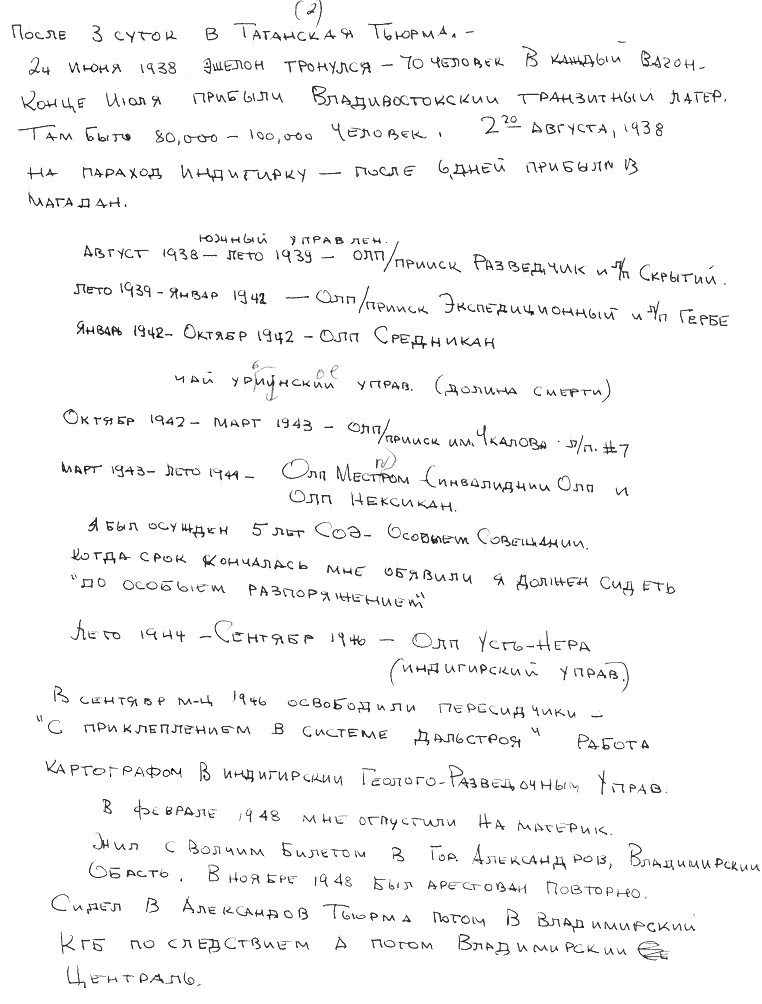 (2)
После 3 суток в Таганская Тьюрма. –
24 июня 1938 эшелон тронулся – 70 человек в каждый вагон –
Конце Июля прибыли Владивостокский транзитный лагер.
Там было 80,000 – 100,000 человек. 2го августа, 1938
на параход Индигирку — после 6 дней прибыли в
Магадан.
Южный управлен.
Август 1938 – лето 1939 – ОЛП/прииск Разведчик и л/п Скрытий.
лето 1939 – январ 1942 — ОЛП/прииск Экспедиционный и л/п Гербе
январь 1942 – Октябр 1942 – ОЛП Средникан
Чай урьинское управ. (долина смерти)
Октябр 1942 – март 1943 – ОЛП/прииск им. Чкалова л/п. #7
март 1943 – лето 1944 – Олп (инвалиднии Олп и
Олп Нексикан.
я был осужден 5 лет СОЭ – Особыем Совещании.
когда срок кончалась мне обявили я должен сидеть
"до особыем разпоряжением"
Лето 1944 – Сентябр 1946 – Олп Усть-Нера
(индигирский управ.)
В сентябр м-ц 1946 освободили пересидчики –
"с приклеплением в системе дальстроя" работа
картографом в индигирский Геолого-Разведочным Управ.
в феврале 1948 мне отпустили на материк.
Жил с Волчим Билетом в Гор. Александров, Владимирский
Обасть. В ноябре 1948 был арестован повторно.
Сидел в Александов Тьюрма потом в Владимирский
КГБ по следствием а потом Владимирский
Централь.